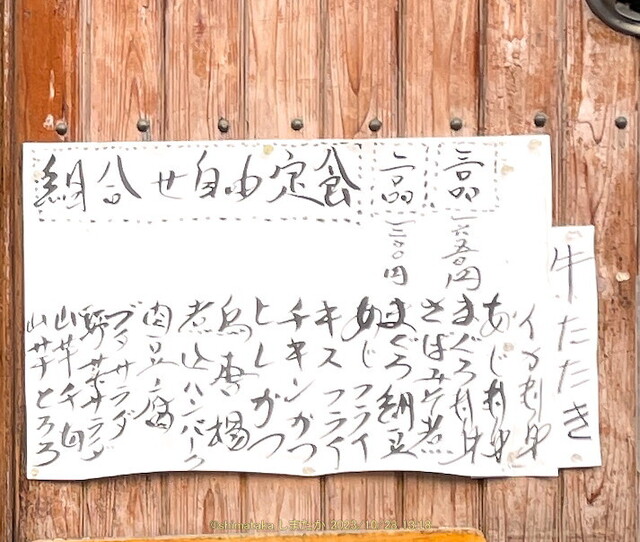 組合せ自由定食
二品 一三〇〇円
三品 一六五〇円
牛たたき
イカ刺身
あじ刺身
まぐろ刺身
さばみそ煮
まぐろ納豆
あじフライ
キスフライ
チキンかつ
ヒレかつ
鳥唐揚
煮込ハンバーグ
肉豆腐
サラダ
野菜サラダ
山芋千切
山芋とろろ
©shimataka しまたか 2023/10/23